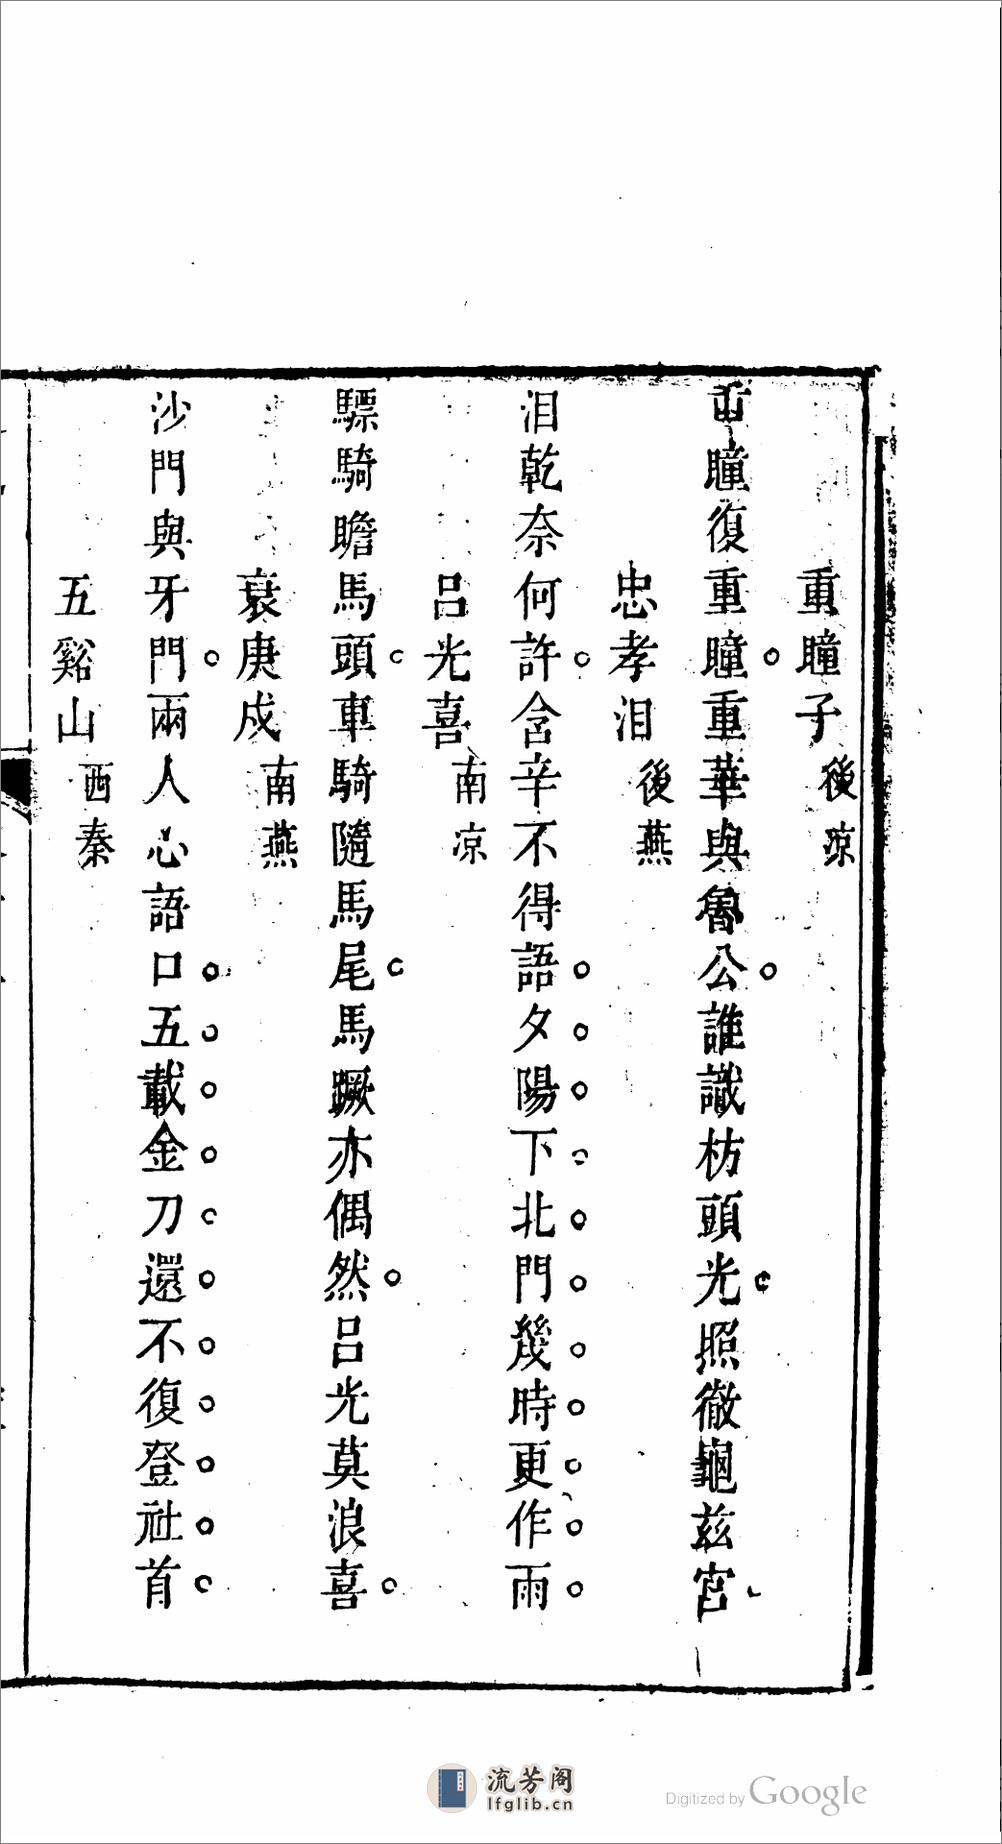 重瞳子 後涼
重瞳復重瞳重華與魯公誰識枋頭光照徹龜茲宮
忠孝泪 後燕
泪乾奈何許含辛不得語夕陽下北門幾時更作雨
呂光喜 南凉
驃騎瞻馬頭車騎隨馬尾馬蹶亦偶然呂光莫浪喜
哀庚戌 南燕
沙門與牙門兩人心語口五載金刀還不復登社首
五谿山 西秦
流芳阁
lfglib.cn
Digitized by Google